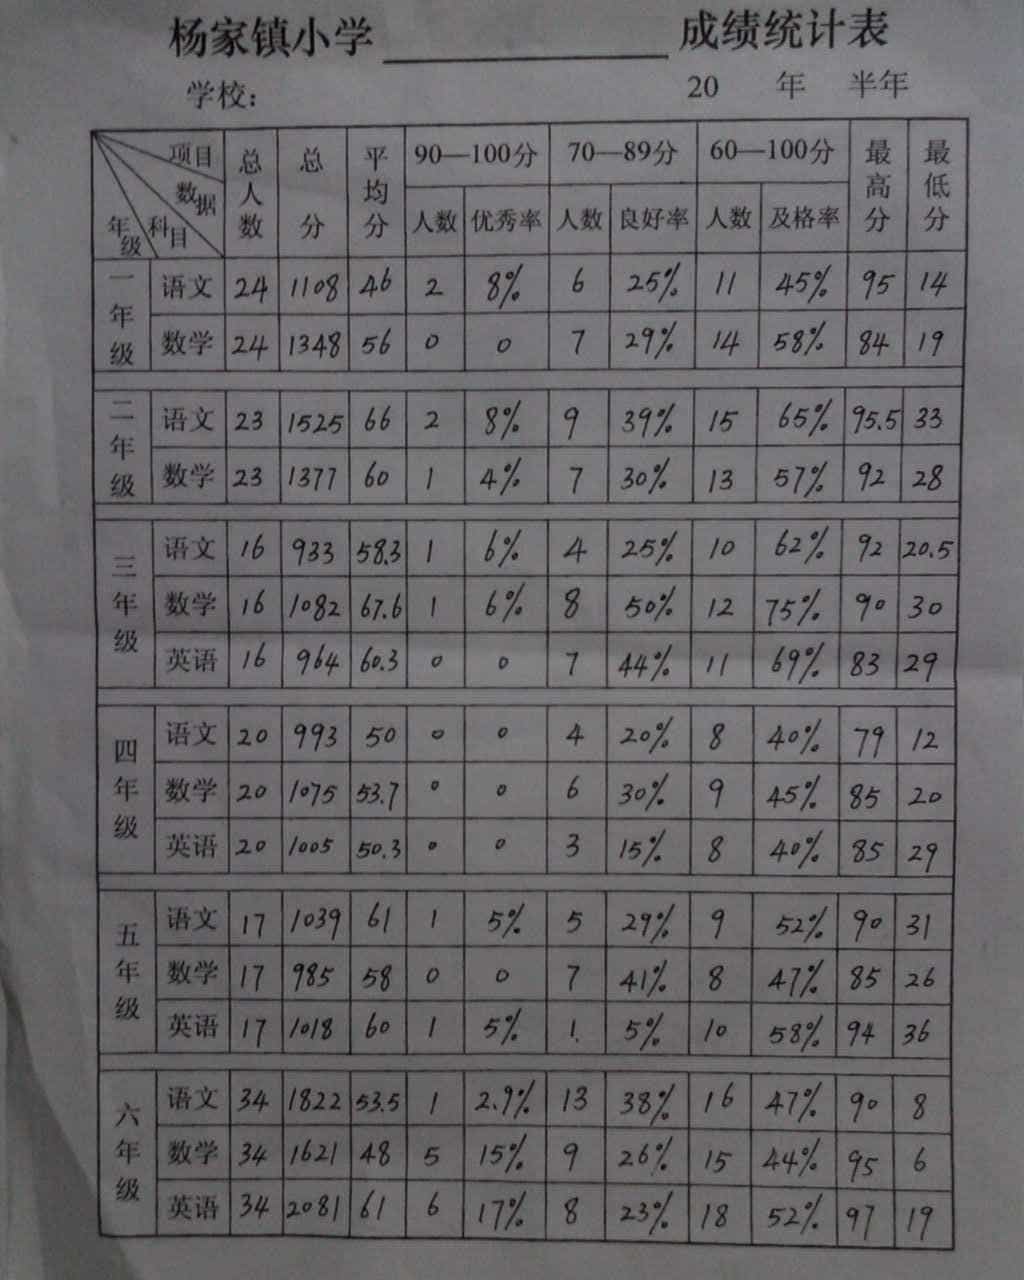 杨家镇小学 成绩统计表
学校： 20 年 半年
项目 数据 科目 年级 总人数 总分 平均分 90—100分 70—89分 60—100分 最高分 最低分
人数 优秀率 人数 良好率 人数 及格率
一年级 语文 24 1108 46 2 8% 6 25% 11 45% 95 14
数学 24 1348 56 0 0 7 29% 14 58% 84 19
二年级 语文 23 1525 66 2 8% 9 39% 15 65% 95.5 33
数学 23 1377 60 1 4% 7 30% 13 57% 92 28
三年级 语文 16 933 58.3 1 6% 4 25% 10 62% 92 20.5
数学 16 1082 67.6 1 6% 8 50% 12 75% 90 30
英语 16 964 60.3 0 0 7 44% 11 69% 83 29
四年级 语文 20 993 50 0 0 4 20% 8 40% 79 12
数学 20 1075 53.7 0 0 6 30% 9 45% 85 20
英语 20 1005 50.3 0 0 3 15% 8 40% 85 29
五年级 语文 17 1039 61 1 5% 5 29% 9 52% 90 31
数学 17 985 58 0 0 7 41% 8 47% 85 26
英语 17 1018 60 1 5% 1 5% 10 58% 94 36
六年级 语文 34 1822 53.5 1 2.9% 13 38% 16 47% 90 8
数学 34 1621 48 5 15% 9 26% 15 44% 95 6
英语 34 2081 61 6 17% 8 23% 18 52% 97 19